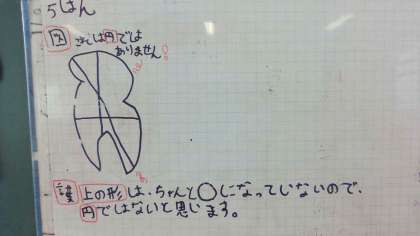 5はん
図 さいしは円では
ありません!
証 上の形は、ちゃんと○になっていないので、
円ではないと思います。